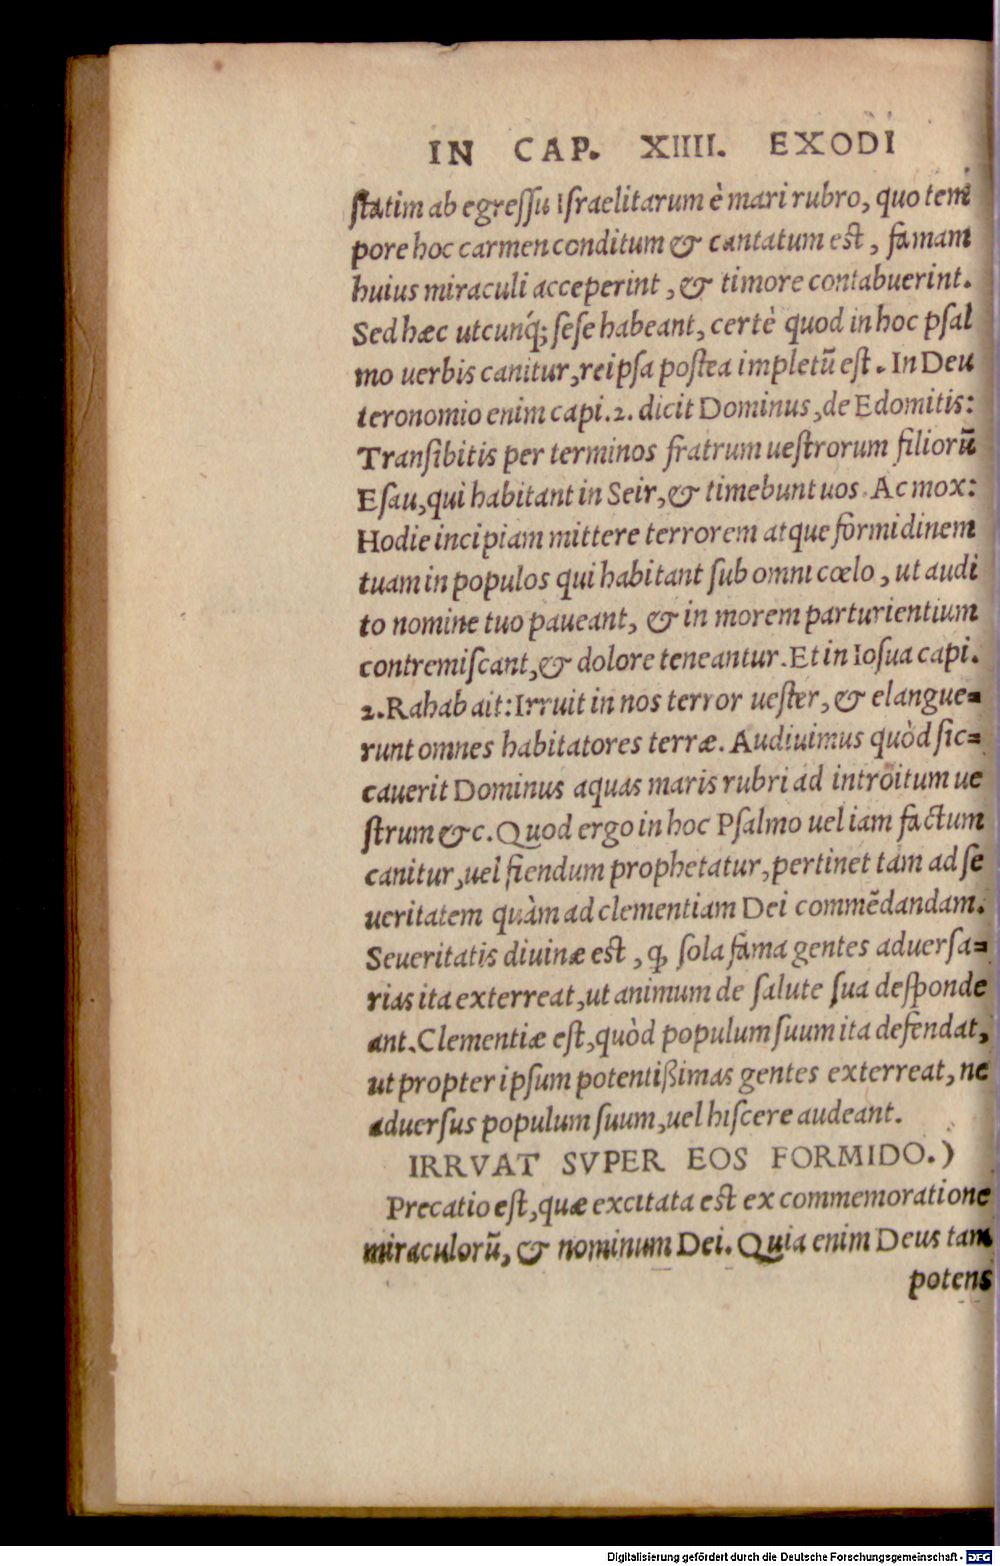 IN CAP. XIIII. EXODI
statim ab egressu Israelitarum è mari rubro, quo tem
pore hoc carmen conditum & cantatum est, famam
huius miraculi acceperint, & timore contabuerint.
Sed hæc utcunq́; sese habeant, certè quod in hoc psal
mo uerbis canitur, reipsa postea impletũ est. In Deu
teronomio enim capi. 2. dicit Dominus, de Edomitis:
Transibitis per terminos fratrum uestrorum filiorũ
Esau, qui habitant in Seir, & timebunt uos. Ac mox:
Hodie incipiam mittere terrorem atque formidinem
tuam in populos qui habitant sub omni cœlo, ut audi
to nomine tuo paueant, & in morem parturientium
contremiscant, & dolore teneantur. Et in Iosua capi.
2. Rahab ait: Irruit in nos terror uester, & elangue=
runt omnes habitatores terræ. Audiuimus quòd sic=
cauerit Dominus aquas maris rubri ad introitum ue
strum &c. Quod ergo in hoc Psalmo uel iam factum
canitur, uel fiendum prophetatur, pertinet tam ad se
ueritatem quàm ad clementiam Dei commẽdandam.
Seueritatis diuinæ est, ꝙ sola fama gentes aduersa=
rias ita exterreat, ut animum de salute sua desponde
ant. Clementiæ est, quòd populum suum ita defendat,
ut propter ipsum potentißimas gentes exterreat, ne
aduersus populum suum, uel hiscere audeant.
IRRVAT SVPER EOS FORMIDO.)
Precatio est, quæ excitata est ex commemoratione
miraculorũ, & nominum Dei. Quia enim Deus tam
potens
Digitalisierung gefördert durch die Deutsche Forschungsgemeinschaft - DFG